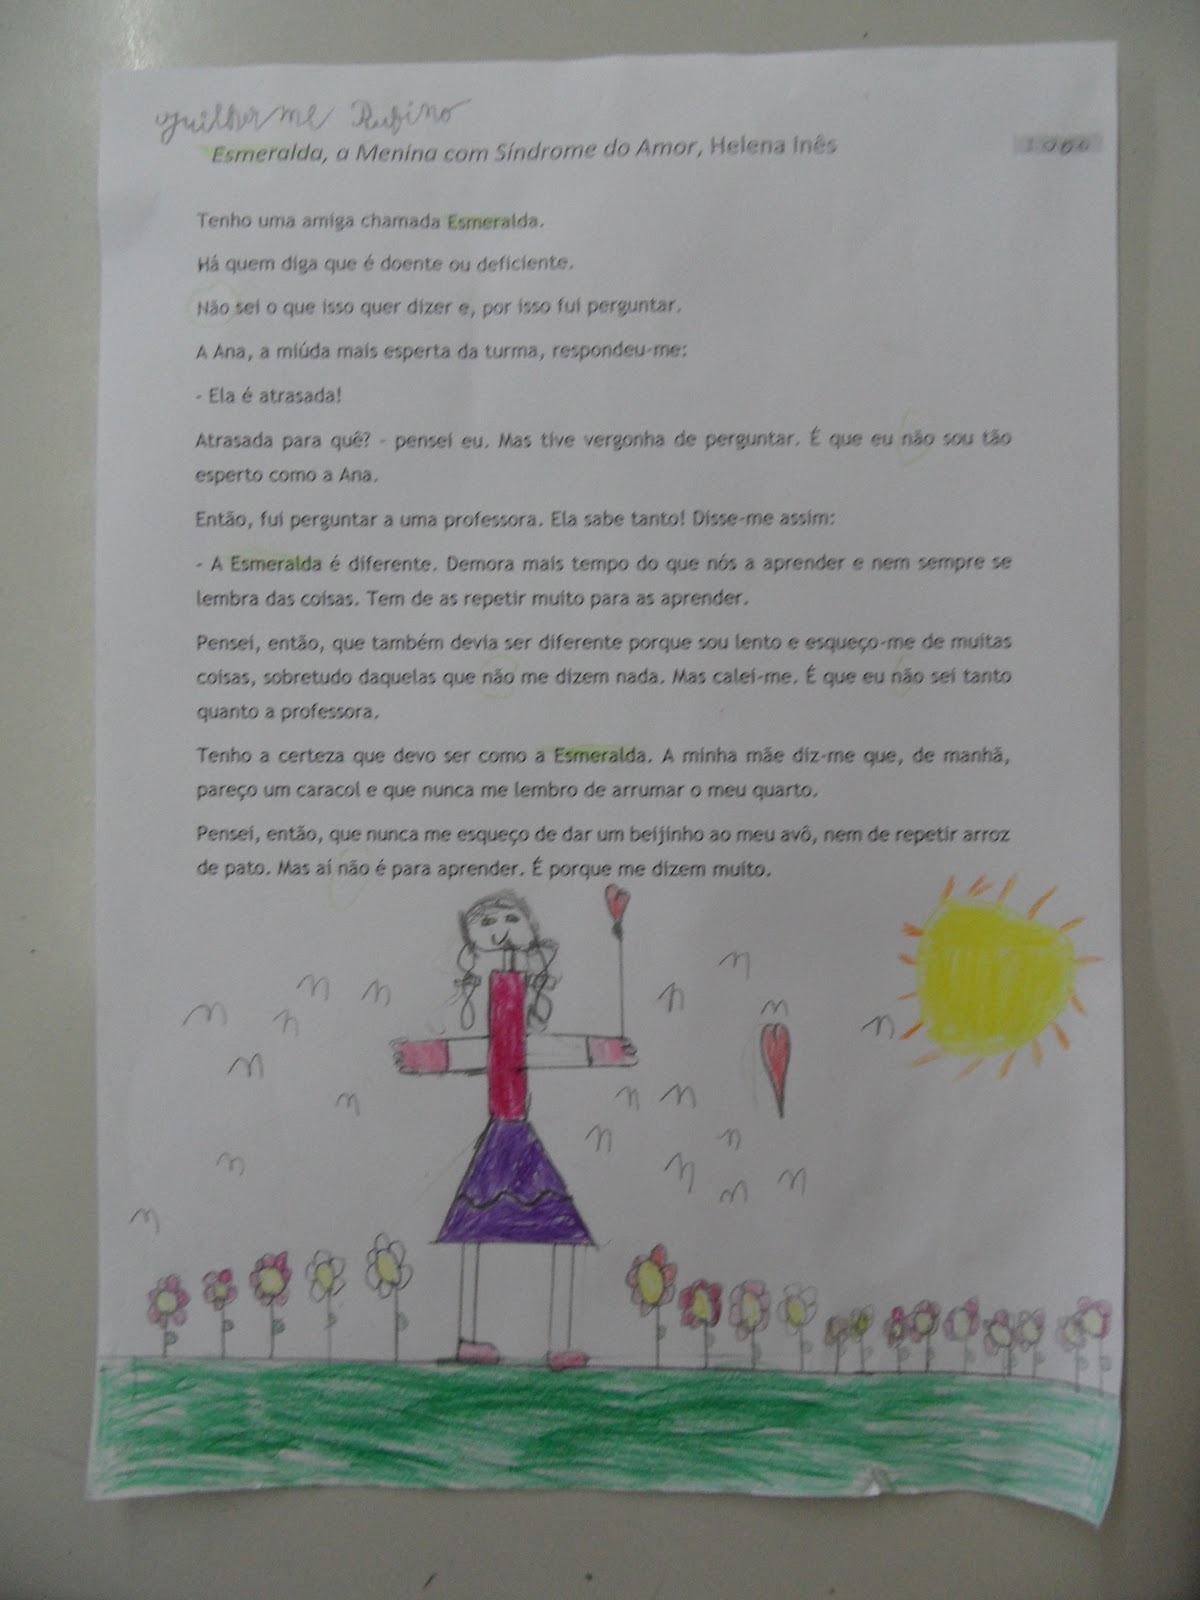 Guilherme Rufino
Esmeralda, a Menina com Síndrome do Amor, Helena Inês
Tenho uma amiga chamada Esmeralda.
Há quem diga que é doente ou deficiente.
Não sei o que isso quer dizer e, por isso fui perguntar.
A Ana, a miúda mais esperta da turma, respondeu-me:
- Ela é atrasada!
Atrasada para quê? - pensei eu. Mas tive vergonha de perguntar. É que eu não sou tão
esperto como a Ana.
Então, fui perguntar a uma professora. Ela sabe tanto! Disse-me assim:
- A Esmeralda é diferente. Demora mais tempo do que nós a aprender e nem sempre se
lembra das coisas. Tem de as repetir muito para as aprender.
Pensei, então, que também devia ser diferente porque sou lento e esqueço-me de muitas
coisas, sobretudo daquelas que não me dizem nada. Mas calei-me. É que eu não sei tanto
quanto a professora.
Tenho a certeza que devo ser como a Esmeralda. A minha mãe diz-me que, de manhã,
pareço um caracol e que nunca me lembro de arrumar o meu quarto.
Pensei, então, que nunca me esqueço de dar um beijinho ao meu avô, nem de repetir arroz
de pato. Mas aí não é para aprender. É porque me dizem muito.